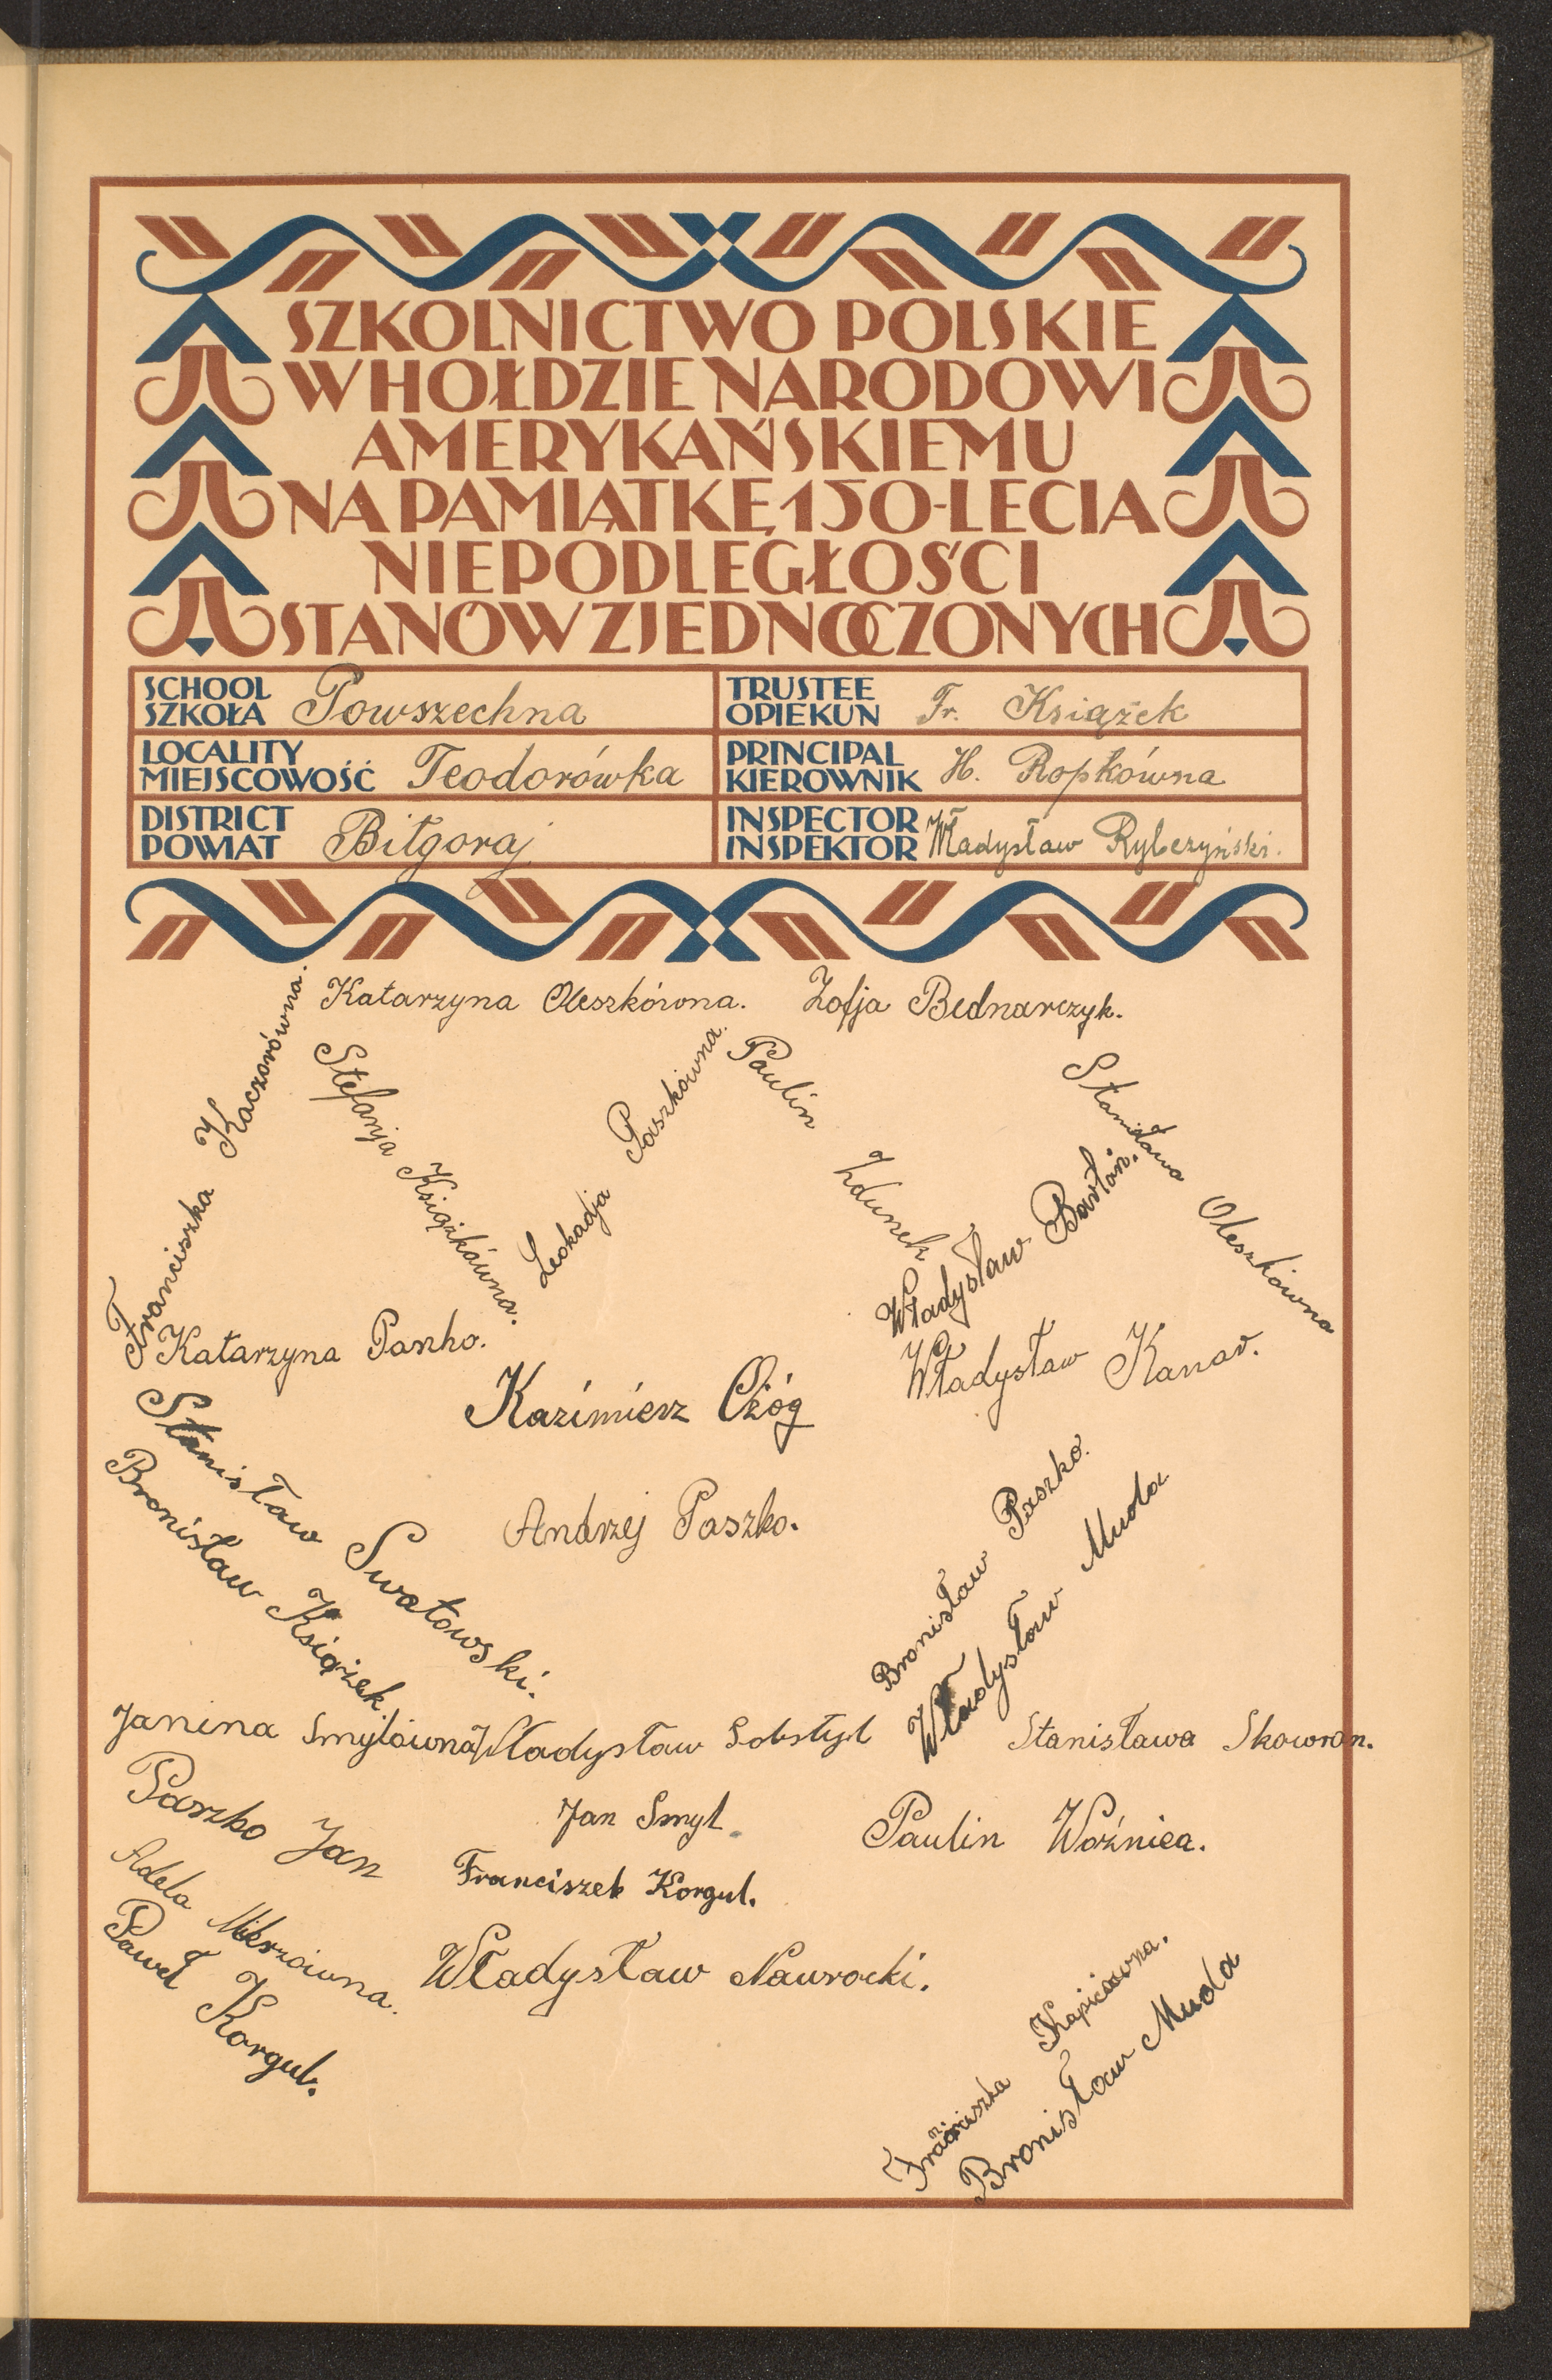 SZKOLNICTWO POLSKIE
W HOŁDZIE NARODOWI
AMERYKAŃSKIEMU
NA PAMIĄTKĘ 150-LECIA
NIEPODLEGŁOŚCI
STANÓW ZJEDNOCZONYCH
SCHOOL
SZKOŁA Powszechna
TRUSTEE
OPIEKUN Fr. Książek
LOCALITY
MIEJSCOWOŚĆ Teodorówka
PRINCIPAL
KIEROWNIK H. Ropkówna
DISTRICT
POWIAT Biłgoraj
INSPECTOR
INSPEKTOR Władysław Rybczyński.
Katarzyna Oleszkówna.
Zofja Bednarczyk.
Franciszka Kaczorówna.
Stefanja Książkówna.
Leokadja Paszkówna.
Paulin Zdunek
Stanisława Oleszkówna
Władysław Bartoń.
Katarzyna Paszko.
Kazimierz Ożóg
Władysław Kanar.
Stanisław Swatowski.
Bronisław Książek.
Andrzej Paszko.
Bronisław Paszko.
Władysław Muda
Janina Smylówna
Władysław Sobstyl
Stanisława Skowron.
Paszko Jan
Jan Smyl
Paulin Woźnica.
Adela Mierzówna.
Franciszek Korgul.
Paweł Korgul.
Władysław Nawrocki.
Franciszka Kapicówna.
Bronisław Muda